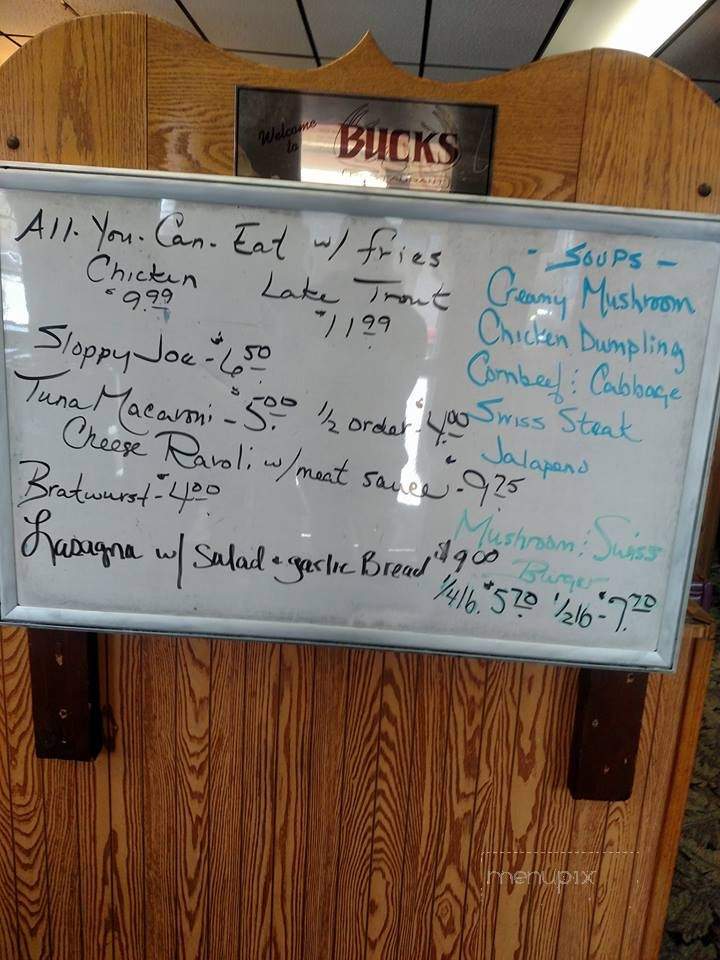 Welcome to
BUCKS
All-You-Can-Eat w/ fries
Chicken
$9.99
Lake Trout
$11.99
Sloppy Joe - $6.50
Tuna Macaroni - $5.00 1/2 order - $4.00
Cheese Ravoli w/meat sauce - $9.25
Bratwurst - $4.00
Lasagna w/ Salad & garlic Bread $9.00
- SOUPS -
Creamy Mushroom
Chicken Dumpling
Cornbeef & Cabbage
Swiss Steak
Jalapeno
Mushroom & Swiss
Burger
1/4 lb. $5.70 1/2 lb - $7.70
menupix